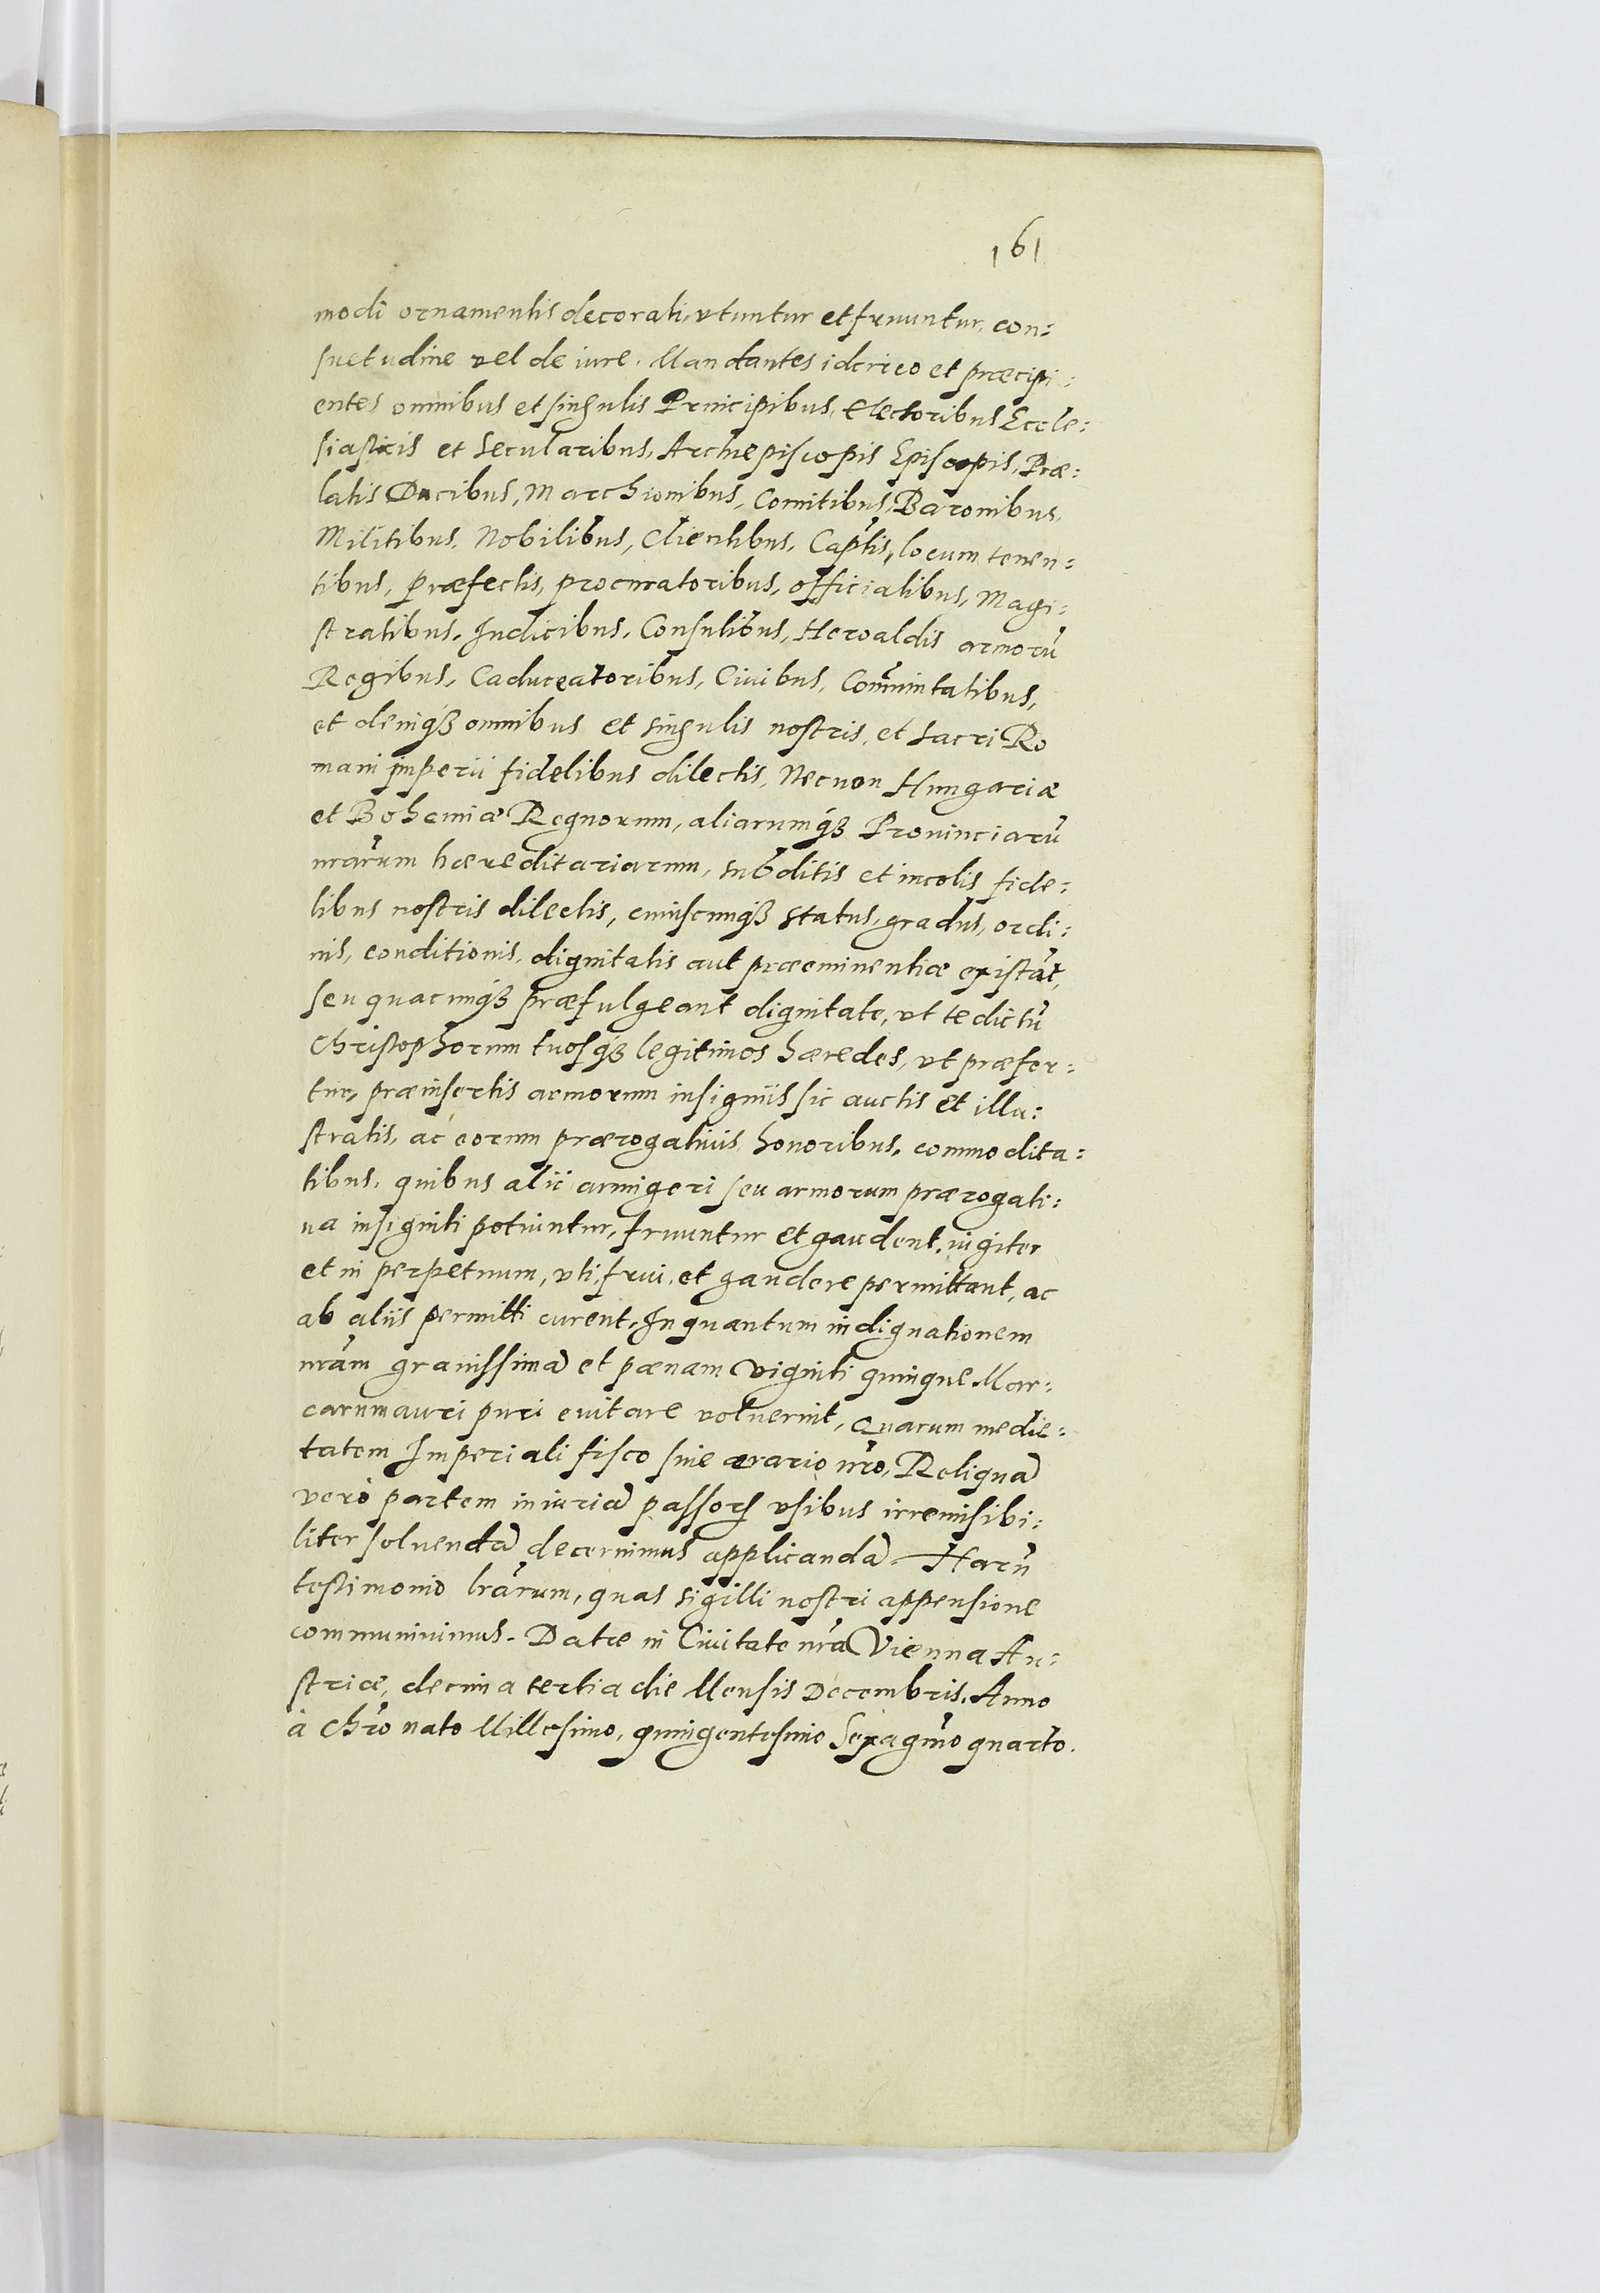 161
modi ornamentis decorati, vtuntur et fruuntur, con:
suetudine vel de iure. Mandantes idcirco et præcipi:
entes omnibus et singulis Principibus, Electoribus Eccle:
siasticis et Secularibus, Archiepiscopis Episcopis, Præ:
latis Ducibus, Marchionibus, Comitibus, Baronibus,
Militibus, Nobilibus, Clientibus, Captis, locum tenen:
tibus, præfectis, procuratoribus, officialibus, Magi:
stratibus, Iudicibus, Consulibus, Heroaldis armorū
Regibus, Caduceatoribus, Ciuibus, Com̄unitatibus,
et deniqȝ omnibus et singulis nostris, et Sacri Ro
mani imperii fidelibus dilectis, Necnon Hungariæ
et Bohemiæ Regnorum, aliarumqȝ Prouinciarū
nr̄arum hæreditariarum, subditis et incolis fide:
libus nostris dilectis, cuiuscumqȝ status, gradus, ordi:
nis, conditionis, dignitatis aut præeminentiæ existāt,
seu quacumqȝ præfulgeant dignitate, vt te dictū
Christophorum tuosqȝ legitimos hæredes, vt præfer:
tur, præinsertis armorum insigniis sic auctis et illu:
stratis, ac eorum prærogatiuis honoribus, commodita:
tibus, quibus alii armigeri seu armorum prærogati:
ua insigniti potiuntur, fruuntur et gaudent, iugiter
et in perpetuum, vti, frui, et gaudere permittant, ac
ab aliis permitti curent, In quantum indignationem
nr̄am grauissimā et pænam viginti quinque Mar:
carum auri puri euitare voluerint, Quarum medie:
tatem Imperiali fisco siue ærario nr̄o, Reliquā
verò partem iniuriā passorȝ vsibus irremisibi:
liter soluendā decernimus applicandā. Harū
testimonio lr̄arum, quas sigilli nostri appensione
communiuimus. Datæ in Ciuitate nr̄a Vienna Au:
striæ, decima tertia die Mensis Decembris, Anno
à Chr̄o nato Millesimo, quingentesimo Sexagm̄o quarto.